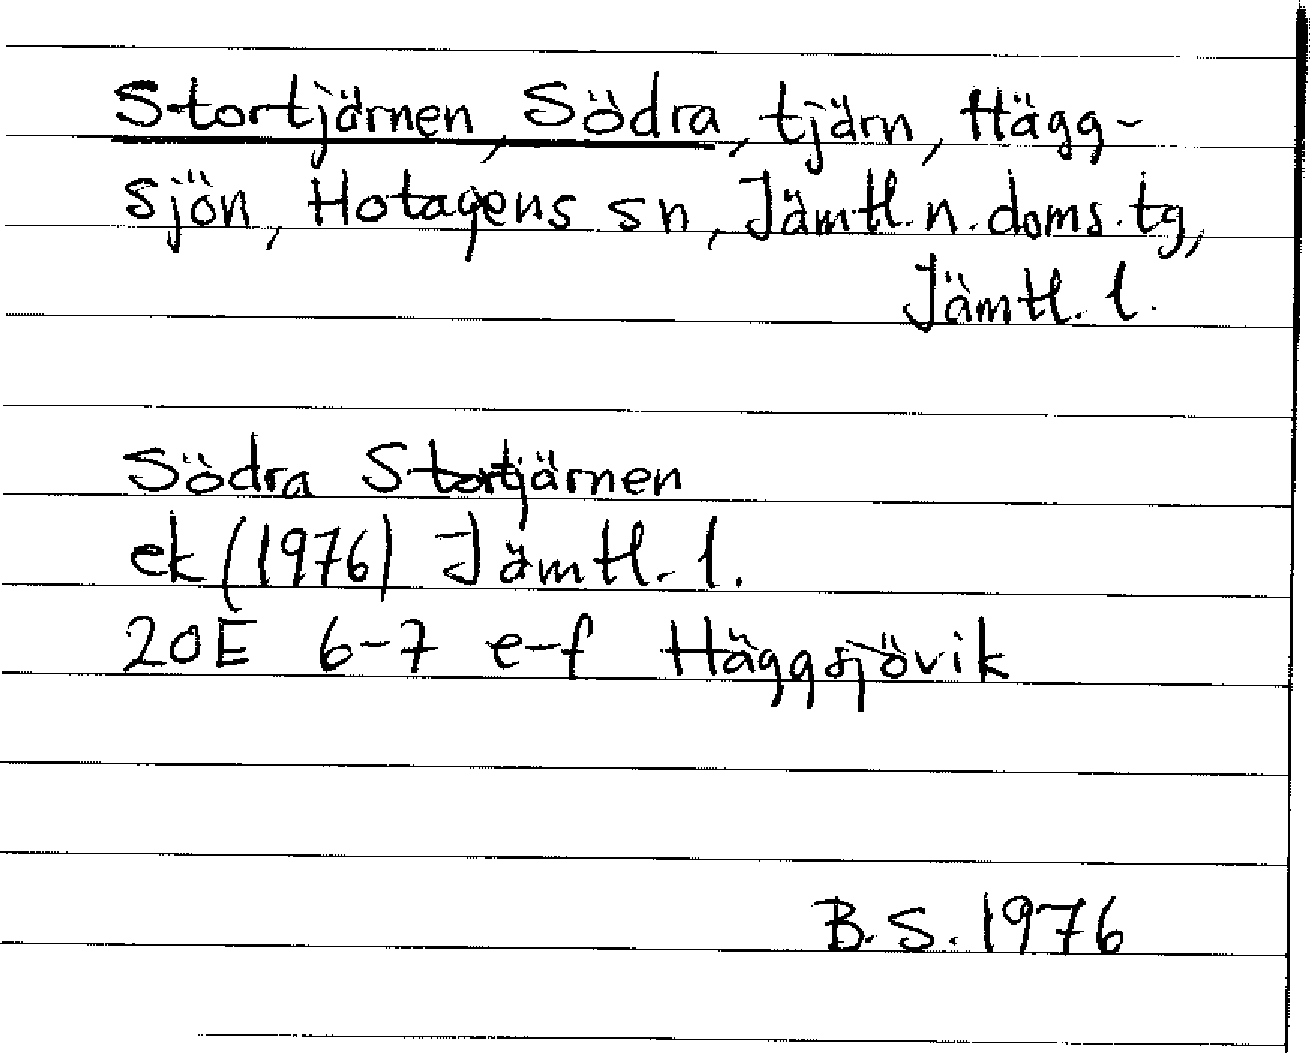 Stortjärnen, Södra, tjärn, Hägg-
sjön, Hotagens sn, Jämtl. n. doms. tg,
Jämtl. l.
Södra Stortjärnen
ek (1976) Jämtl. l.
20E 6-7 e-f Häggsjövik
B.S. 1976